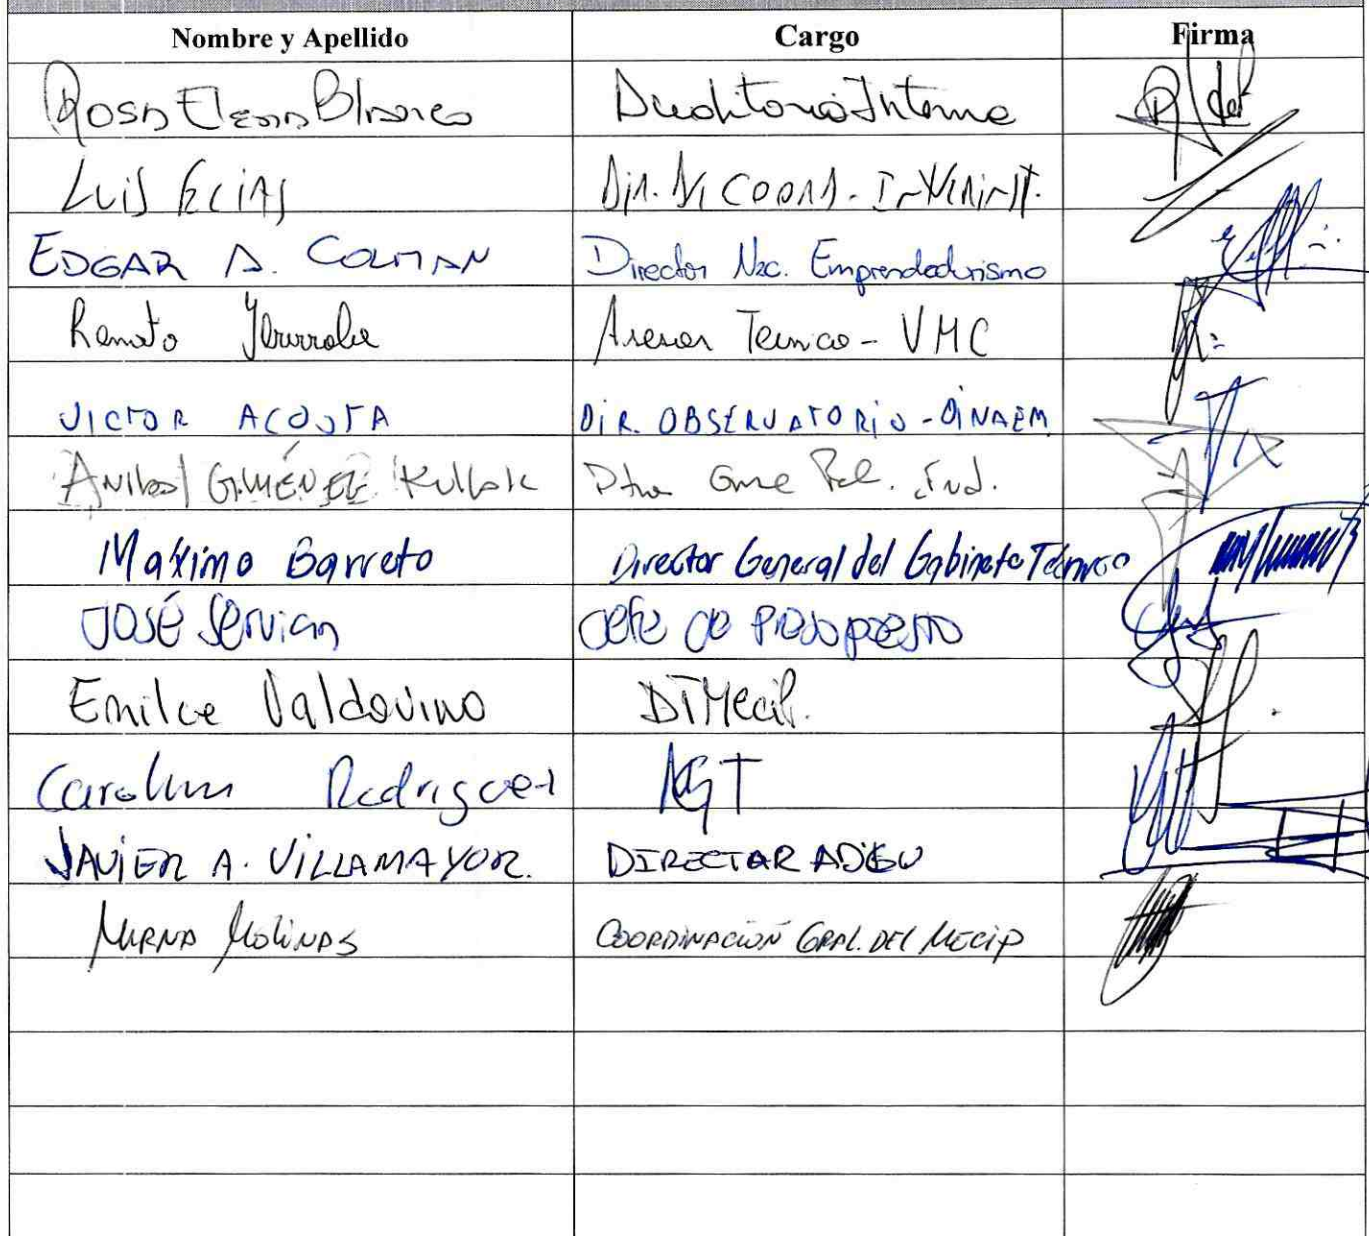 Nombre y Apellido Cargo Firma
Rosa Elena Blanco Auditoria Interna
Luis Elias Dir.
EDGAR A. COLMAN Director Nac. Emprendedurismo
Renato Asesor Tecnico - VMC
VICTOR ACOSTA DIR. OBSERVATORIO - DINAEM
Anibal GIMÉNEZ Kullak Ind.
Maximo Barreto Director General del Gabinete Técnico
JOSÉ Servian Jefe de Presupuesto
Emilce Valdovino DTMecip.
Carolina Rodriguez AGT
JAVIER A. VILLAMAYOR. DIRECTOR
MIRNA MOLINAS COORDINACIÓN GRAL. DEL MECIP